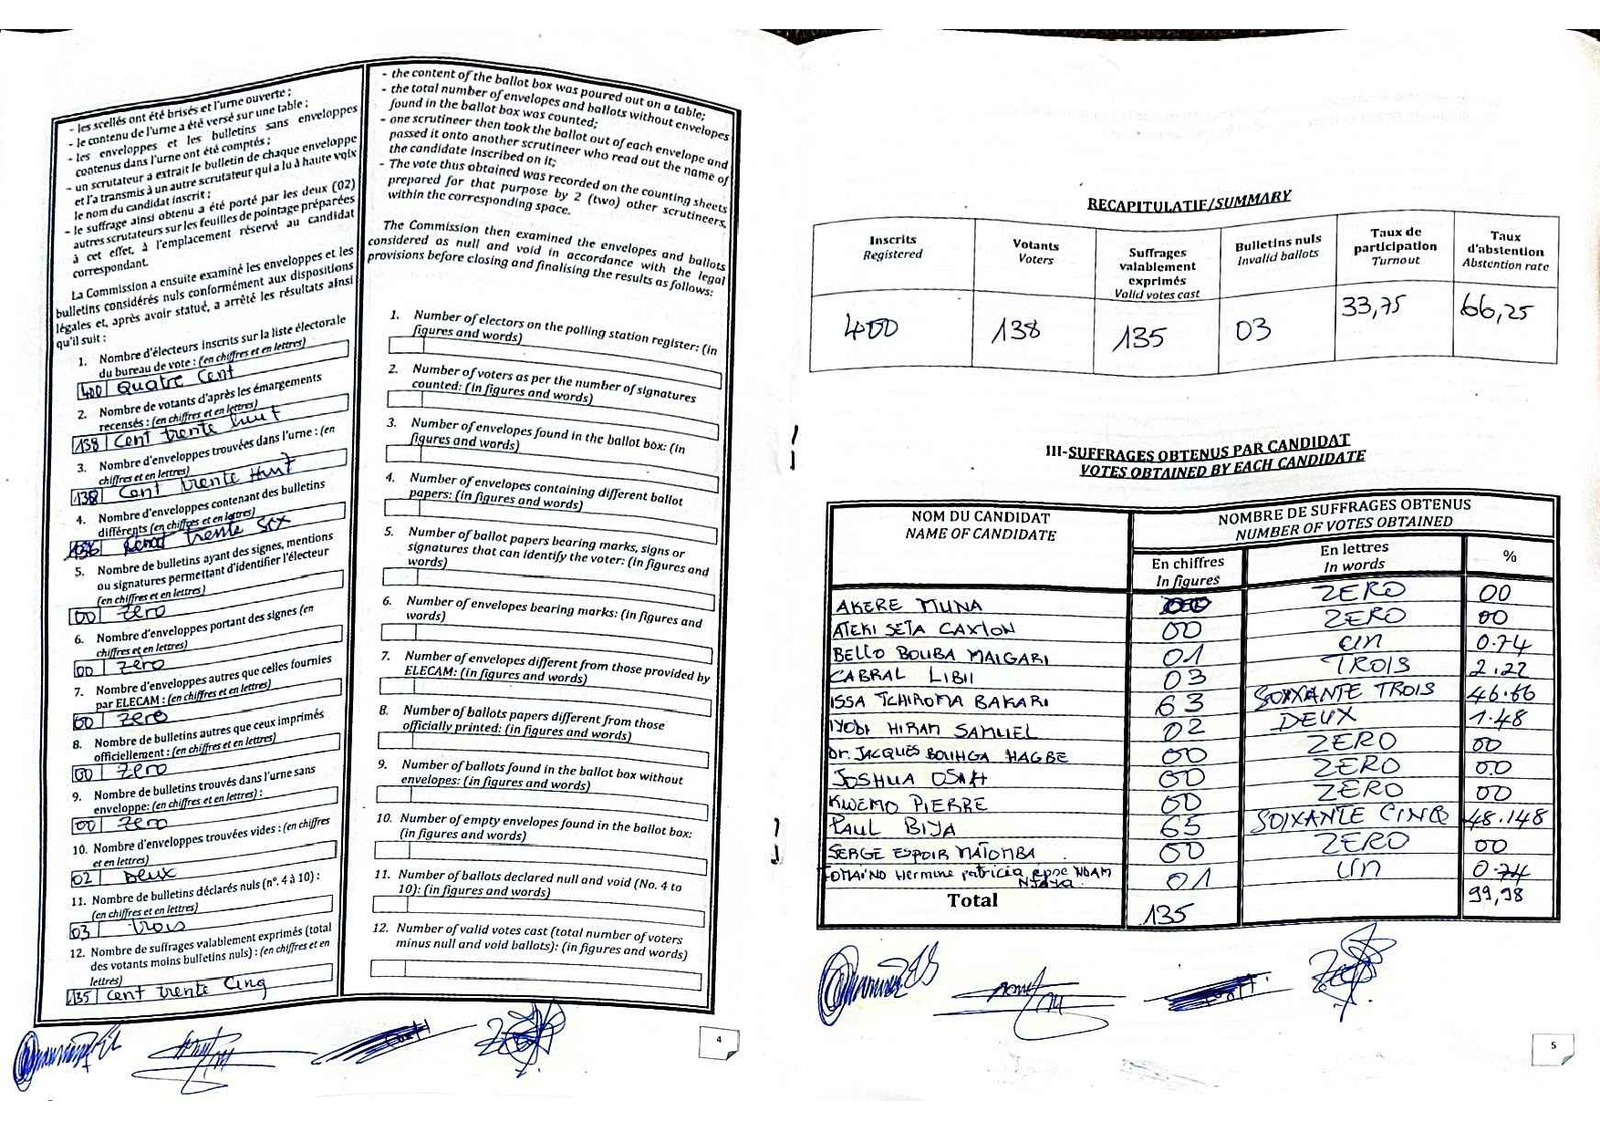 - les scellés ont été brisés et l'urne ouverte ;
- le contenu de l'urne a été versé sur une table ;
- les enveloppes et les bulletins sans enveloppes
contenus dans l'urne ont été comptés ;
- un scrutateur a extrait le bulletin de chaque enveloppe
et l'a transmis à un autre scrutateur qui a lu à haute voix
le nom du candidat inscrit ;
- le suffrage ainsi obtenu a été porté par les deux (02)
autres scrutateurs sur les feuilles de pointage préparées
à cet effet, à l'emplacement réservé au candidat
correspondant.
La Commission a ensuite examiné les enveloppes et les
bulletins considérés nuls conformément aux dispositions
légales et, après avoir statué, a arrêté les résultats ainsi
qu'il suit :
1. Nombre d'électeurs inscrits sur la liste électorale
du bureau de vote : (en chiffres et en lettres)
400 Quatre Cent
2. Nombre de votants d'après les émargements
recensés : (en chiffres et en lettres)
138 Cent trente huit
3. Nombre d'enveloppes trouvées dans l'urne : (en
chiffres et en lettres)
138 Cent trente Huit
4. Nombre d'enveloppes contenant des bulletins
différents (en chiffres et en lettres)
136 trente Six
5. Nombre de bulletins ayant des signes, mentions
ou signatures permettant d'identifier l'électeur
(en chiffres et en lettres)
00 Zero
6. Nombre d'enveloppes portant des signes (en
chiffres et en lettres)
00 Zero
7. Nombre d'enveloppes autres que celles fournies
par ELECAM : (en chiffres et en lettres)
00 Zero
8. Nombre de bulletins autres que ceux imprimés
officiellement : (en chiffres et en lettres)
00 Zero
9. Nombre de bulletins trouvés dans l'urne sans
enveloppe: (en chiffres et en lettres) :
00 Zero
10. Nombre d'enveloppes trouvées vides : (en chiffres
et en lettres)
02 Deux
11. Nombre de bulletins déclarés nuls (n°. 4 à 10) :
(en chiffres et en lettres)
03 trois
12. Nombre de suffrages valablement exprimés (total
des votants moins bulletins nuls) : (en chiffres et en
lettres)
135 Cent trente Cinq
- the content of the ballot box was poured out on a table;
- the total number of envelopes and ballots without envelopes
found in the ballot box was counted;
- one scrutineer then took the ballot out of each envelope and
passed it onto another scrutineer who read out the name of
the candidate inscribed on it;
- The vote thus obtained was recorded on the counting sheets
prepared for that purpose by 2 (two) other scrutineers,
within the corresponding space.
The Commission then examined the envelopes and ballots
considered as null and void in accordance with the legal
provisions before closing and finalising the results as follows:
1. Number of electors on the polling station register: (in
figures and words)
2. Number of voters as per the number of signatures
counted: (in figures and words)
3. Number of envelopes found in the ballot box: (in
figures and words)
4. Number of envelopes containing different ballot
papers: (in figures and words)
5. Number of ballot papers bearing marks, signs or
signatures that can identify the voter: (in figures and
words)
6. Number of envelopes bearing marks: (in figures and
words)
7. Number of envelopes different from those provided by
ELECAM: (in figures and words)
8. Number of ballots papers different from those
officially printed: (in figures and words)
9. Number of ballots found in the ballot box without
envelopes: (in figures and words)
10. Number of empty envelopes found in the ballot box:
(in figures and words)
11. Number of ballots declared null and void (No. 4 to
10): (in figures and words)
12. Number of valid votes cast (total number of voters
minus null and void ballots): (in figures and words)
4
RECAPITULATIF/SUMMARY
Inscrits
Registered
Votants
Voters
Suffrages
valablement
exprimés
Valid votes cast
Bulletins nuls
Invalid ballots
Taux de
participation
Turnout
Taux
d'abstention
Abstention rate
400 138 135 03 33,75 66,25
III-SUFFRAGES OBTENUS PAR CANDIDAT
VOTES OBTAINED BY EACH CANDIDATE
NOM DU CANDIDAT
NAME OF CANDIDATE
NOMBRE DE SUFFRAGES OBTENUS
NUMBER OF VOTES OBTAINED
En chiffres
In figures
En lettres
In words
%
AKERE MUNA ZERO 00
ATEKI SETA CAXTON 00 ZERO 00
BELLO BOUBA MAIGARI 01 un 0.74
CABRAL LIBII 03 TROIS 2.22
ISSA TCHIROMA BAKARI 63 SOIXANTE TROIS 46.66
IYODI HIRAM SAMUEL 02 DEUX 1.48
Dr. JACQUES BOUHGA HAGBE 00 ZERO 00
JOSHUA OSIH 00 ZERO 00
KWEMO PIERRE 00 ZERO 00
PAUL BIYA 65 SOIXANTE CINQ 48.148
SERGE ESPOIR MATOMBA 00 ZERO 00
TOMAINO Hermine patricia epse NDAM
NJOYA 01 un 0.74
Total 135 99,98
5